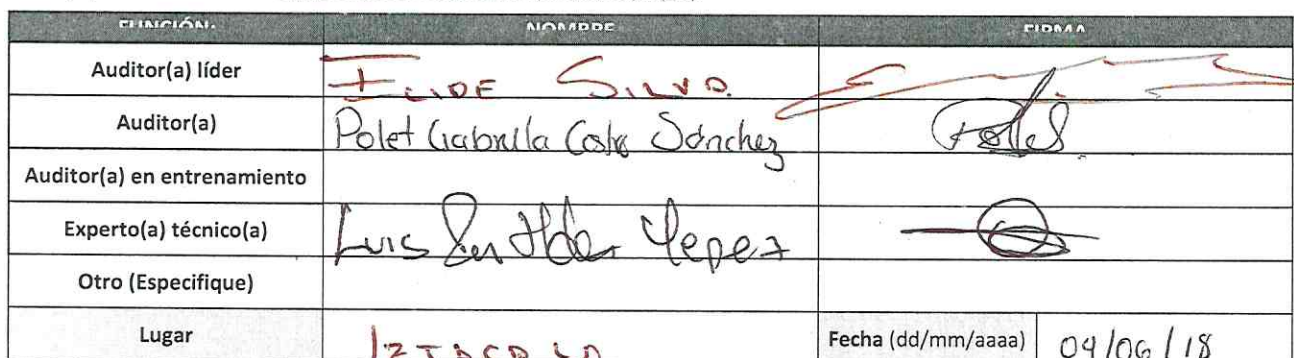 FUNCIÓN: NOMBRE FIRMA
Auditor(a) líder SILVA
Auditor(a) Polet Gabriella Castro Sánchez
Auditor(a) en entrenamiento
Experto(a) técnico(a) Luis Yepez
Otro (Especifique)
Lugar IZTACALA Fecha (dd/mm/aaaa) 04/06/18